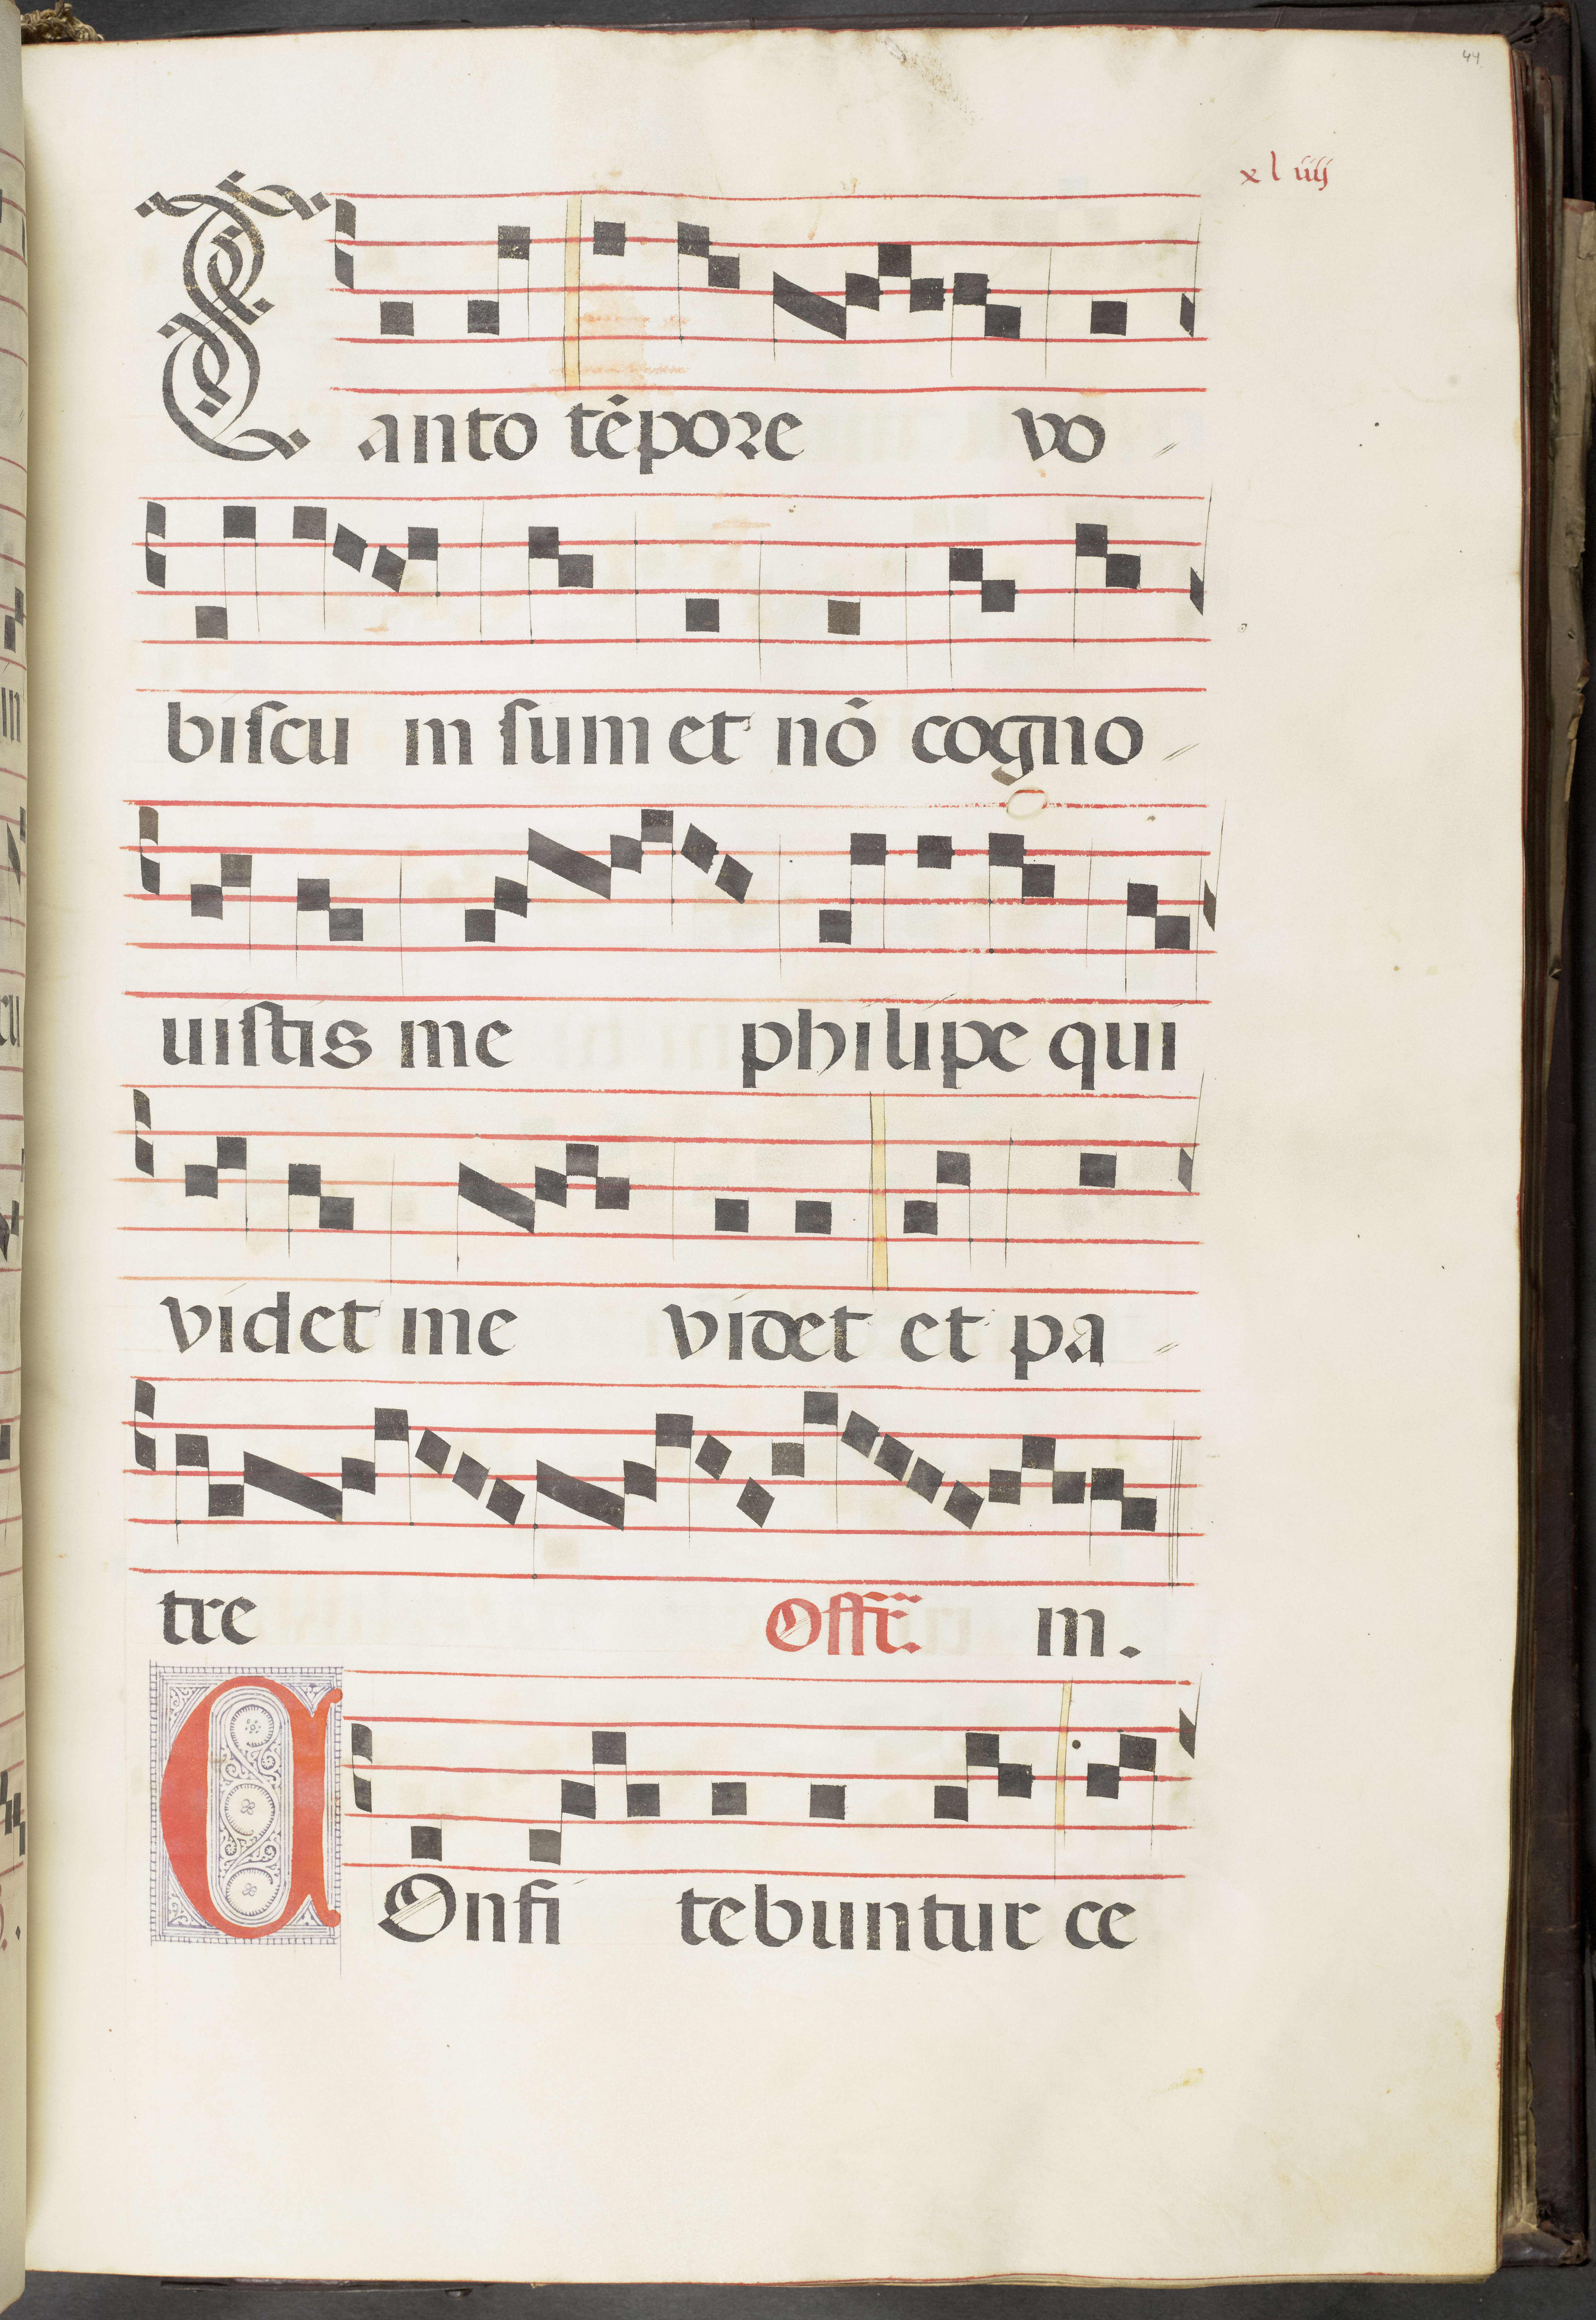 44
xliiij
Tanto tēpore vo
biſcu m ſum et nō cogno
uiſtis me philipe qui
videt me videt et pa
tre Offr̃. m.
COnfi tebuntur ce